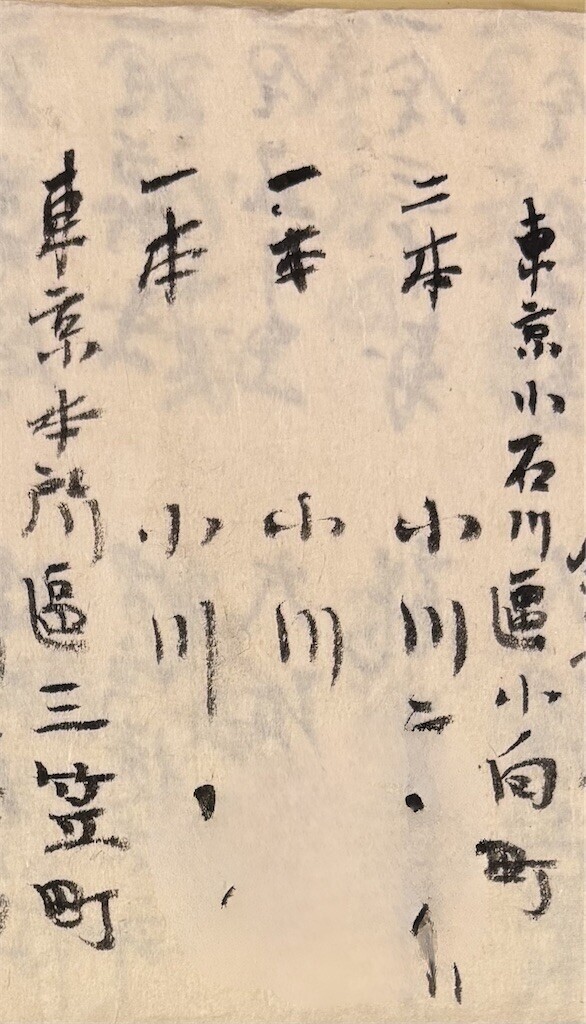 東京小石川區小向町
二本 小川二
一本 小川
一本 小川
東京本所區三笠町